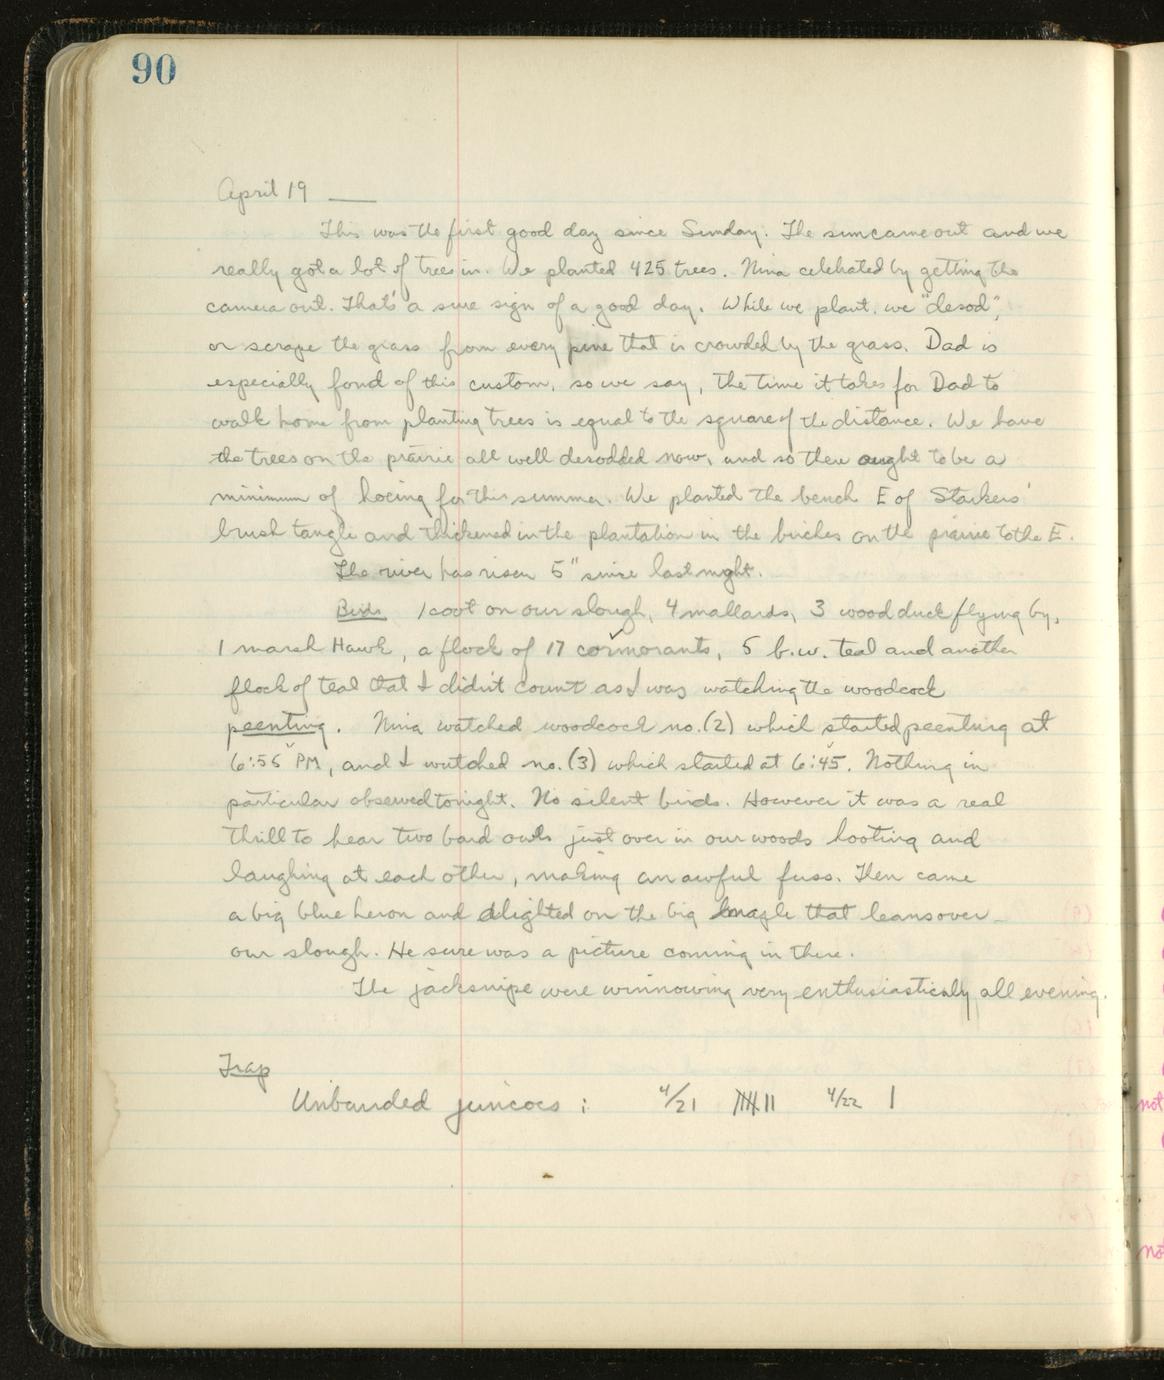 90
April 19 —
This was the first good day since Sunday. The sun came out and we
really got a lot of trees in. We planted 425 trees. Nina celebrated by getting the
camera out. That's a sure sign of a good day. While we plant, we "desod",
or scrape the grass from every pine that is crowded by the grass. Dad is
especially fond of this custom, so we say, the time it takes for Dad to
walk home from planting trees is equal to the square of the distance. We have
the trees on the prairie all well desodded now, and so there ought to be a
minimum of hoeing for this summer. We planted the bench E of Starkers'
brush tangle and thickened in the plantation in the birches on the prairie to the E.
The river has risen 5" since last night.
Birds 1 coot on our slough, 4 mallards, 3 wood duck flying by,
1 marsh Hawk, a flock of 17 cormorants, 5 b.w. teal and another
flock of teal that I didn't count as I was watching the woodcock
peenting. Nina watched woodcock no. (2) which started peenting at
6:56 PM, and I watched no. (3) which started at 6:45. Nothing in
particular observed tonight. No silent birds. However it was a real
thrill to hear two bard owls just over in our woods hooting and
laughing at each other, making an awful fuss. Then came
a big blue heron and alighted on the big that leans over
our slough. He sure was a picture coming in there.
The jacksnipe were winnowing very enthusiasticly all evening.
Trap
Unbanded juncoes : 4/21 𝍸 || 4/22 |
not
not